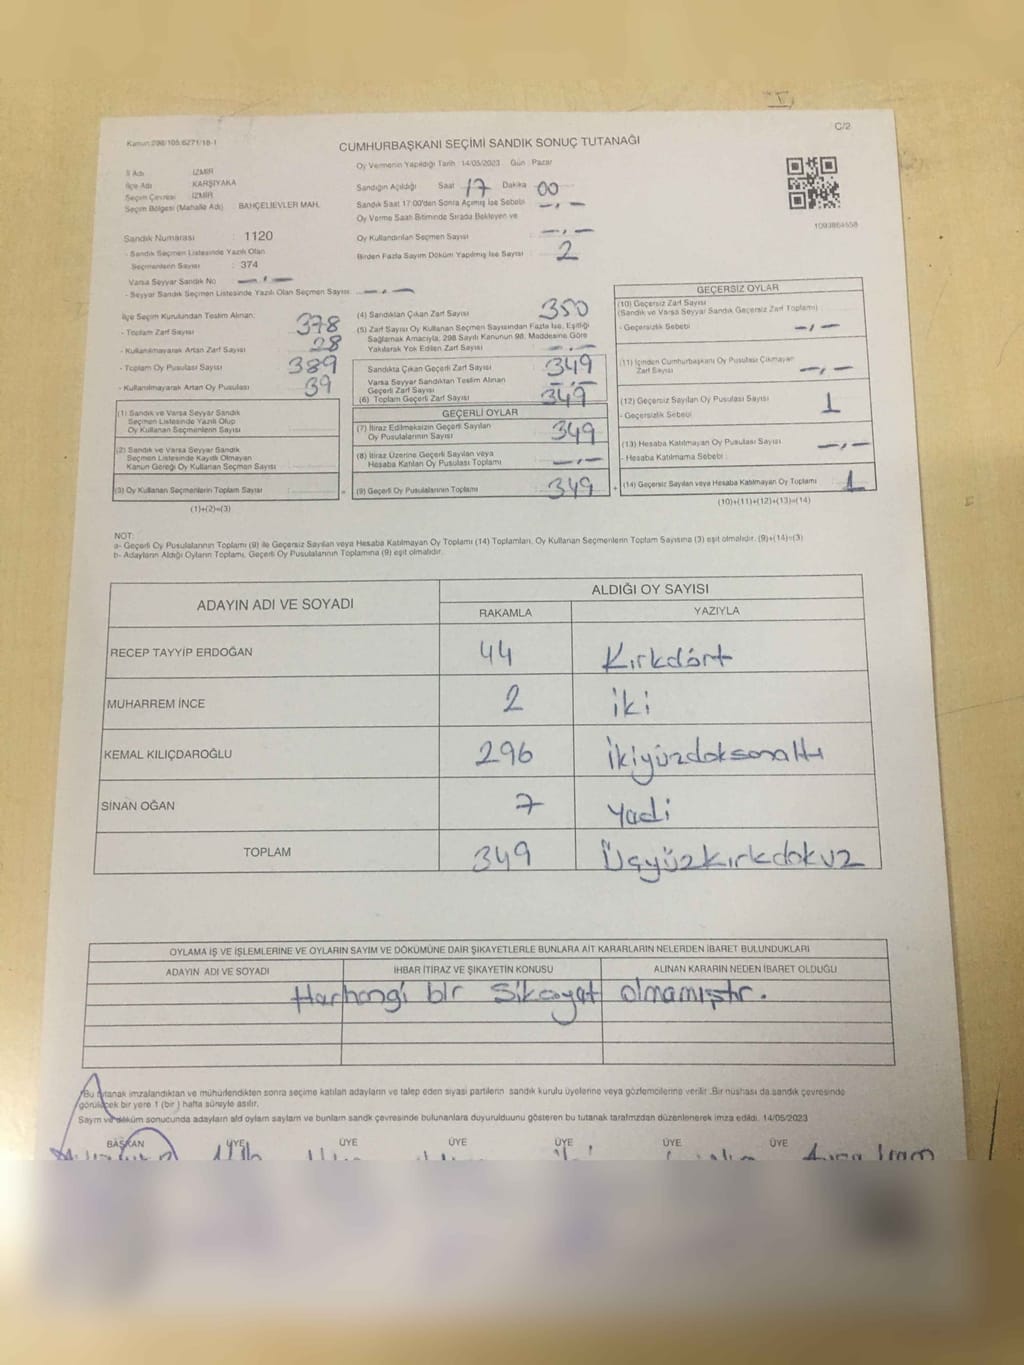 C/2
Kanun:298/105,6271/18-1
CUMHURBAŞKANI SEÇİMİ SANDIK SONUÇ TUTANAĞI
Oy Vermenin Yapıldığı Tarih : 14/05/2023 Gün : Pazar
İl Adı İZMİR
İlçe Adı KARŞIYAKA
Seçim Çevresi İZMİR
Seçim Bölgesi (Mahalle Adı) : BAHÇELİEVLER MAH.
Sandık Numarası : 1120
- Sandık Seçmen Listesinde Yazılı Olan
Seçmenlerin Sayısı : 374
Varsa Seyyar Sandık No — . —
- Seyyar Sandık Seçmen Listesinde Yazılı Olan Seçmen Sayısı — . —
Sandığın Açıldığı Saat 17 Dakika 00
Sandık Saat 17.00'den Sonra Açılmış İse Sebebi — . —
Oy Verme Saati Bitiminde Sırada Bekleyen ve
Oy Kullandırılan Seçmen Sayısı — . —
Birden Fazla Sayım Döküm Yapılmış İse Sayısı 2
1093864558
İlçe Seçim Kurulundan Teslim Alınan:
- Toplam Zarf Sayısı 378
- Kullanılmayarak Artan Zarf Sayısı 28
- Toplam Oy Pusulası Sayısı 389
- Kullanılmayarak Artan Oy Pusulası 39
(1) Sandık ve Varsa Seyyar Sandık
Seçmen Listesinde Yazılı Olup
Oy Kullanan Seçmenlerin Sayısı
(2) Sandık ve Varsa Seyyar Sandık
Seçmen Listesinde Kayıtlı Olmayan
Kanun Gereği Oy Kullanan Seçmen Sayısı
(3) Oy Kullanan Seçmenlerin Toplam Sayısı =
(1)+(2)=(3)
(4) Sandıktan Çıkan Zarf Sayısı 350
(5) Zarf Sayısı Oy Kullanan Seçmen Sayısından Fazla İse, Eşitliği
Sağlamak Amacıyla, 298 Sayılı Kanunun 98. Maddesine Göre
Yakılarak Yok Edilen Zarf Sayısı — . —
Sandıkta Çıkan Geçerli Zarf Sayısı 349
Varsa Seyyar Sandıktan Teslim Alınan
Geçerli Zarf Sayısı — . —
(6) Toplam Geçerli Zarf Sayısı 349
GEÇERLİ OYLAR
(7) İtiraz Edilmeksizin Geçerli Sayılan
Oy Pusulalarının Sayısı 349
(8) İtiraz Üzerine Geçerli Sayılan veya
Hesaba Katılan Oy Pusulası Toplamı — . —
(9) Geçerli Oy Pusulalarının Toplamı 349 +
GEÇERSİZ OYLAR
(10) Geçersiz Zarf Sayısı
(Sandık ve Varsa Seyyar Sandık Geçersiz Zarf Toplamı)
- Geçersizlik Sebebi — . —
(11) İçinden Cumhurbaşkanı Oy Pusulası Çıkmayan
Zarf Sayısı — . —
(12) Geçersiz Sayılan Oy Pusulası Sayısı 1
- Geçersizlik Sebebi
(13) Hesaba Katılmayan Oy Pusulası Sayısı — . —
- Hesaba Katılmama Sebebi :
(14) Geçersiz Sayılan veya Hesaba Katılmayan Oy Toplamı 1
(10)+(11)+(12)+(13)=(14)
NOT:
a- Geçerli Oy Pusulalarının Toplamı (9) ile Geçersiz Sayılan veya Hesaba Katılmayan Oy Toplamı (14) Toplamları, Oy Kullanan Seçmenlerin Toplam Sayısına (3) eşit olmalıdır. (9)+(14)=(3)
b- Adayların Aldığı Oyların Toplamı, Geçerli Oy Pusulalarının Toplamına (9) eşit olmalıdır.
ADAYIN ADI VE SOYADI ALDIĞI OY SAYISI
RAKAMLA YAZIYLA
RECEP TAYYİP ERDOĞAN 44 Kırkdört
MUHARREM İNCE 2 iki
KEMAL KILIÇDAROĞLU 296 ikiyüzdoksanaltı
SİNAN OĞAN 7 yadi
TOPLAM 349 Üçyüzkırkdokuz
OYLAMA İŞ VE İŞLEMLERİNE VE OYLARIN SAYIM VE DÖKÜMÜNE DAİR ŞİKAYETLERLE BUNLARA AİT KARARLARIN NELERDEN İBARET BULUNDUKLARI
ADAYIN ADI VE SOYADI İHBAR İTİRAZ VE ŞİKAYETİN KONUSU ALINAN KARARIN NEDEN İBARET OLDUĞU
Harhangi bir Sikayat olmamıştır.
Bu tutanak imzalandıktan ve mühürlendikten sonra seçime katılan adayların ve talep eden siyasi partilerin sandık kurulu üyelerine veya gözlemcilerine verilir .Bir nushası da sandık çevresinde
görülecek bir yere 1 (bir) hafta süreyle asılır.
Sayım ve döküm sonucunda adayların ald oylam saylam ve bunlam sandk çevresinde bulunanlara duyurulduunu gösteren bu tutanak taralmzdan düzenlenerek imza edildi. 14/05/2023
BAŞKAN ÜYE ÜYE ÜYE ÜYE ÜYE ÜYE